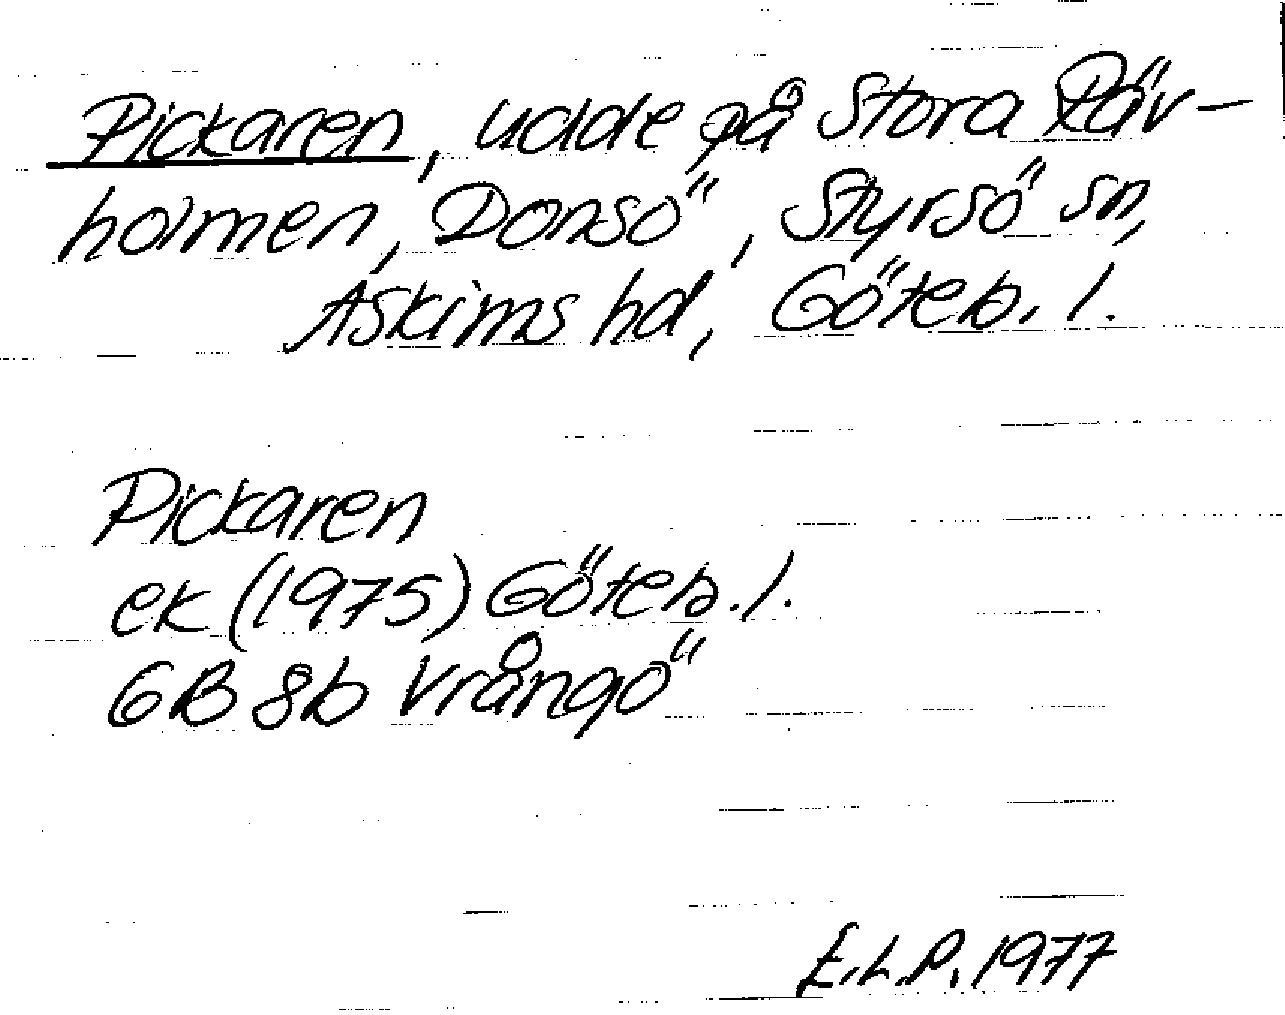 Pickaren, udde på Stora Räv-
holmen, Donsö, Styrsö sn,
Askims hd, Göteb. l.
Pickaren
ek (1975) Göteb. l.
6B 8b Vrångö
E.L.P. 1977